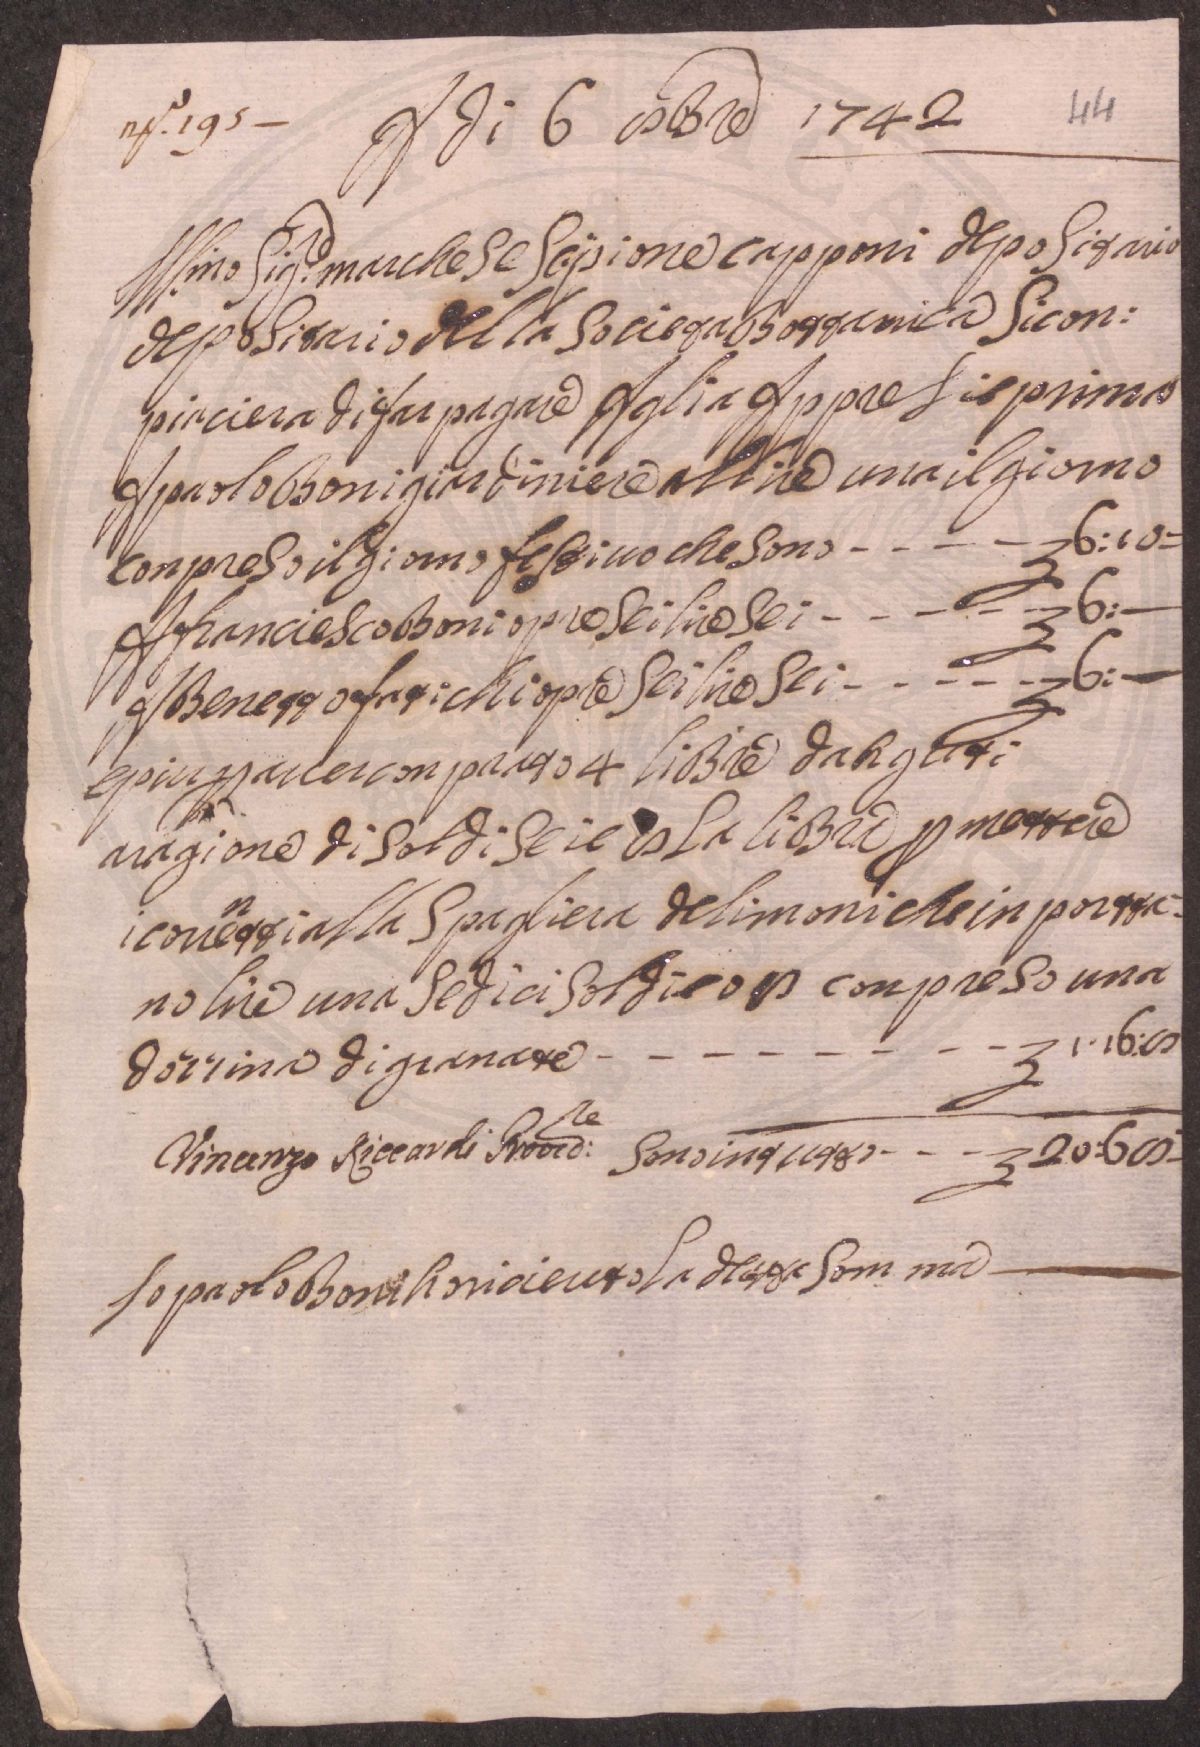 nº. 195 — A di 6 8bre 1742 44
Ill.mo Sig.re marchese Scipione capponi depositario
depositario della Societa Bottanica Si con:
piaciera di far pagare A gli A Appresi e prima
A paolo Boni giardiniere a lire una il giorno
conpreso il giorno festivo che sono - - - - - £ 6:10=
A franciesco Boni opre sei lire sei - - - - - £ 6:—
A Benetto fatichi opre sei lire sei - - - - - - £ 6:—
e piu p aver conprato 4 libre d aguti
a ragione di soldi sei e 8 la libra p mettere
i corenti alla spagliera de limoni che in portta-
no lire una sedici soldi e 8 conpreso una
dozzina di granate - - - - - - - - - £ 1:16:8
Vincenzo Riccardi Proved:re Sono in tutto - - - £ 20:6:8-
Io paolo Boni ho riceuto la detta Som ma —